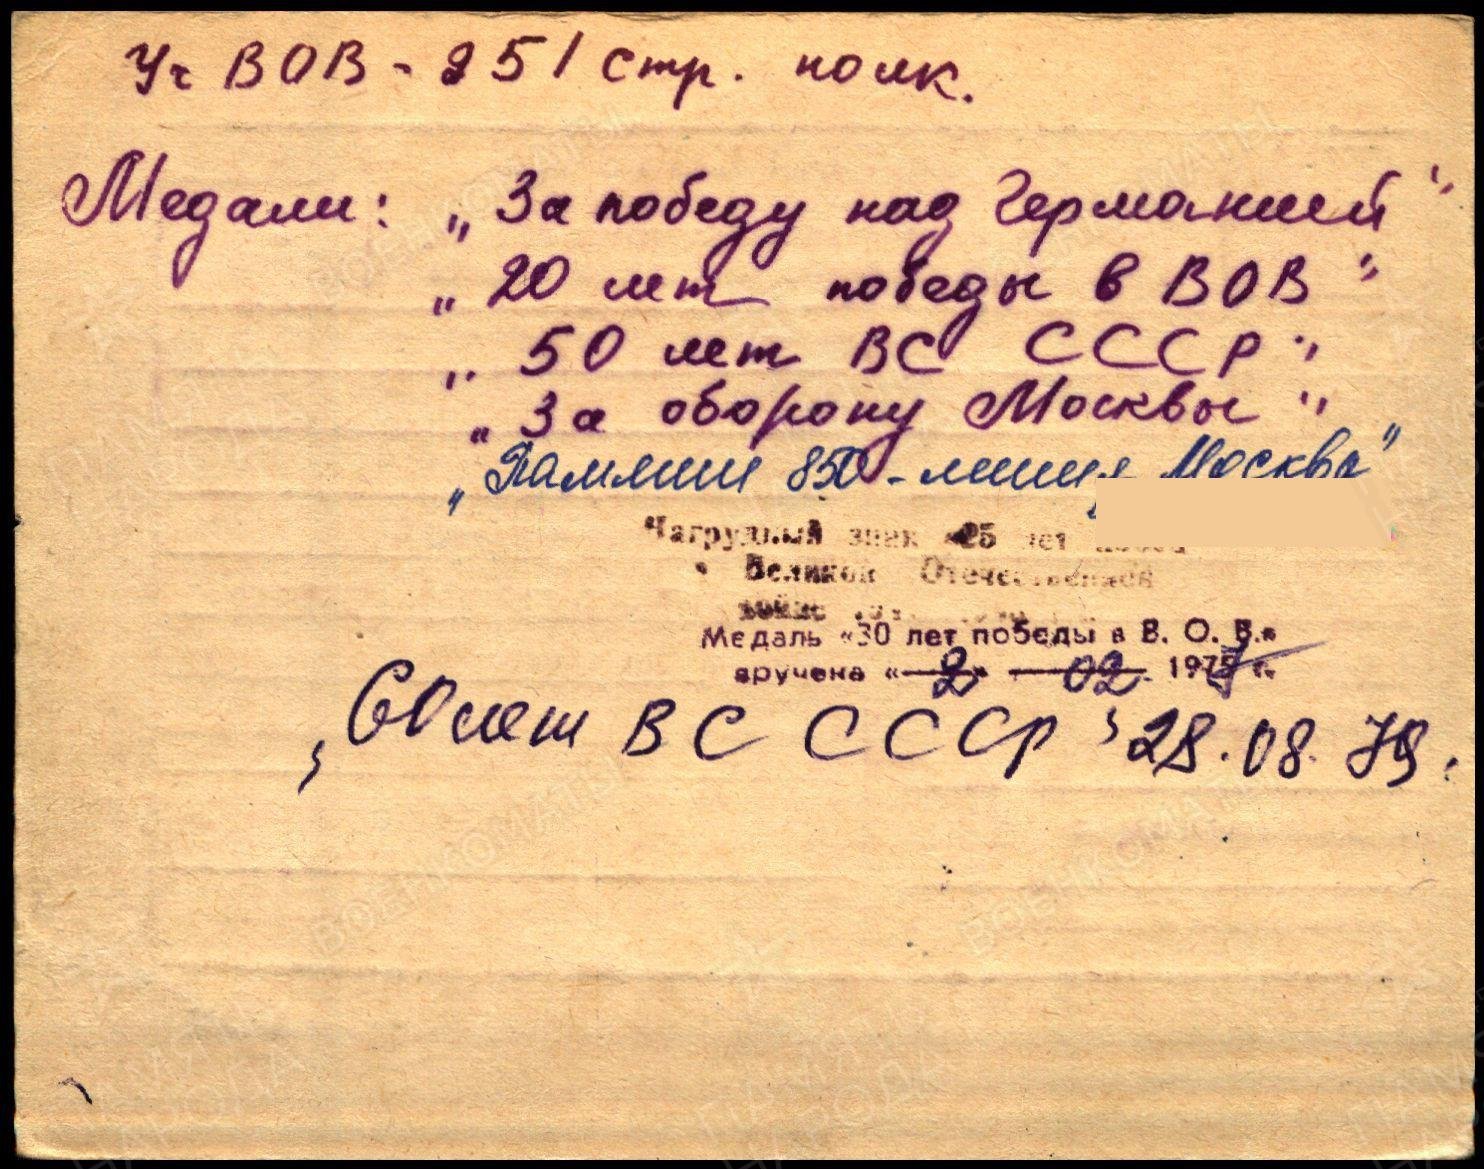 Уч ВОВ - 251 стр. полк.
Медали: „За победу над Германией"
„20 лет победы в ВОВ"
„50 лет ВС СССР"
„За оборону Москвы"
„Памяти 850-летия Москвы"
Нагрудный знак «25 лет
в Великой Отечественной
войне
Медаль «30 лет победы в В. О. В.»
вручена «2» 02 197 г.
„60 лет ВС СССР" 28.08.79.